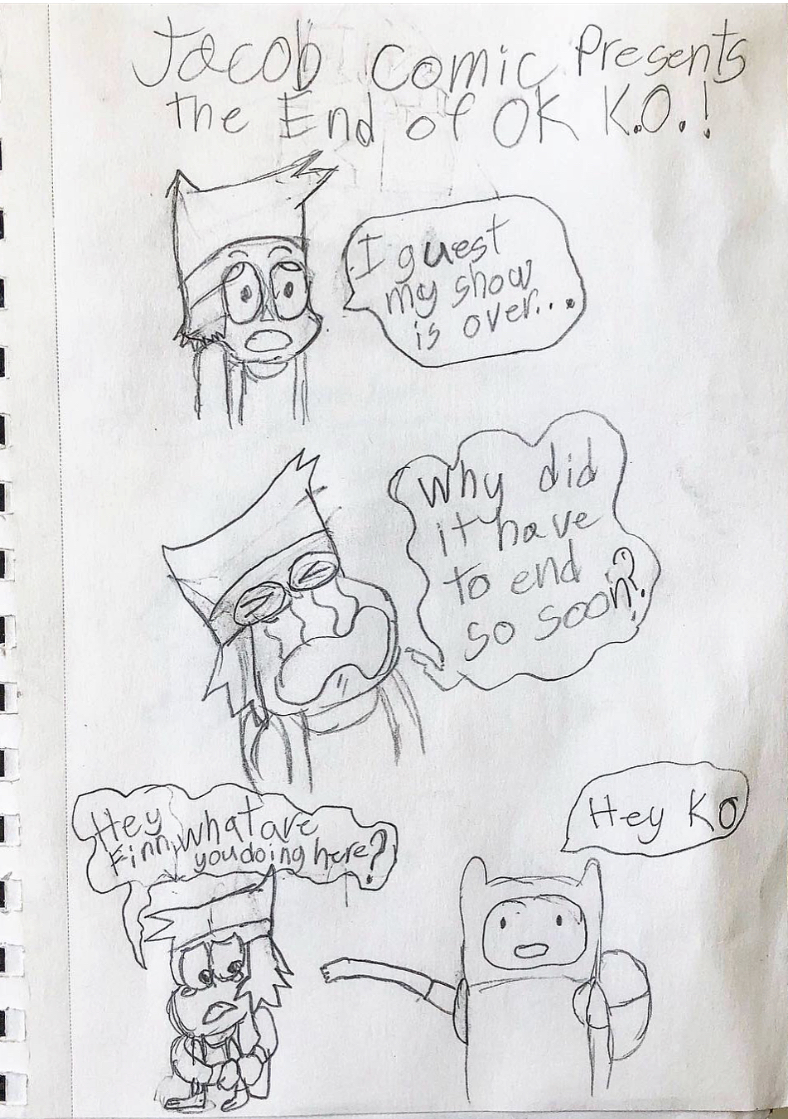 Jacob Comic Presents
the End of OK K.O.!
I guest
my show
is over...
Why did
it have
to end
so soon?
Hey KO
Hey
Finn, what are
you doing here?